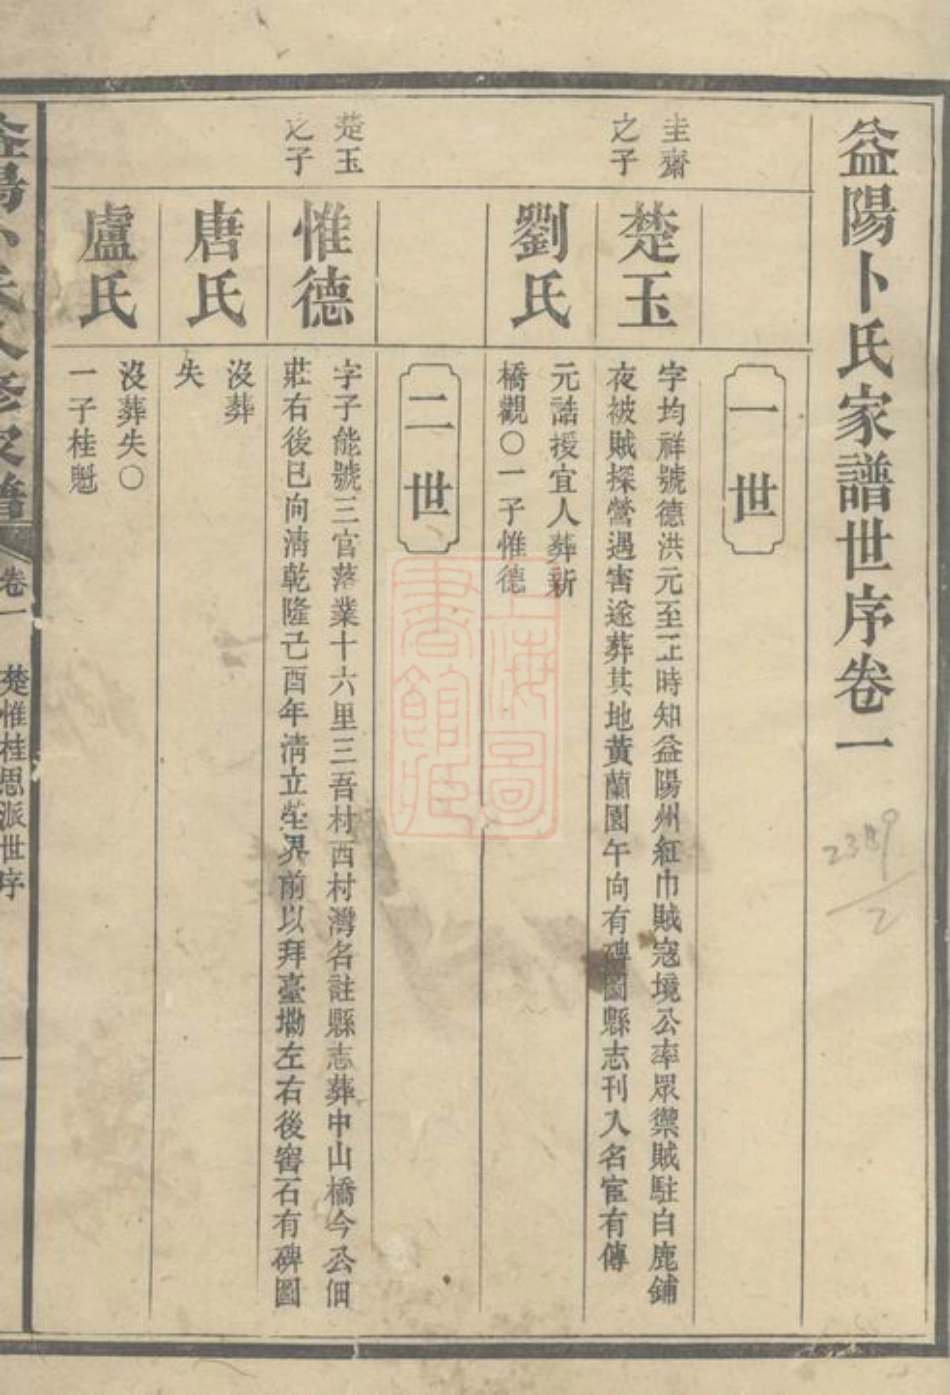 益陽卜氏家譜世序卷一
一世
圭齋
之子
楚玉
字均祥號德洪元至正時知益陽州紅巾賊寇境公率眾禦賊駐白鹿鋪
夜被賊探營遇害遂葬其地黃蘭園午向有碑圖縣志刊入名宦有傳
劉氏
元誥授宜人葬新
橋觀〇一子惟德
二世
楚玉
之子
惟德
字子能號三官落業十六里三吾村西村灣名註縣志葬中山橋今公佃
莊右後巳向清乾隆己酉年清立塋界前以拜臺墈左右後窖石有碑圖
唐氏
沒葬
失
盧氏
沒葬失〇
一子桂魁
益陽卜氏 修家譜
卷一
楚惟桂思派世序
一
上海圖
書館藏
2389
2